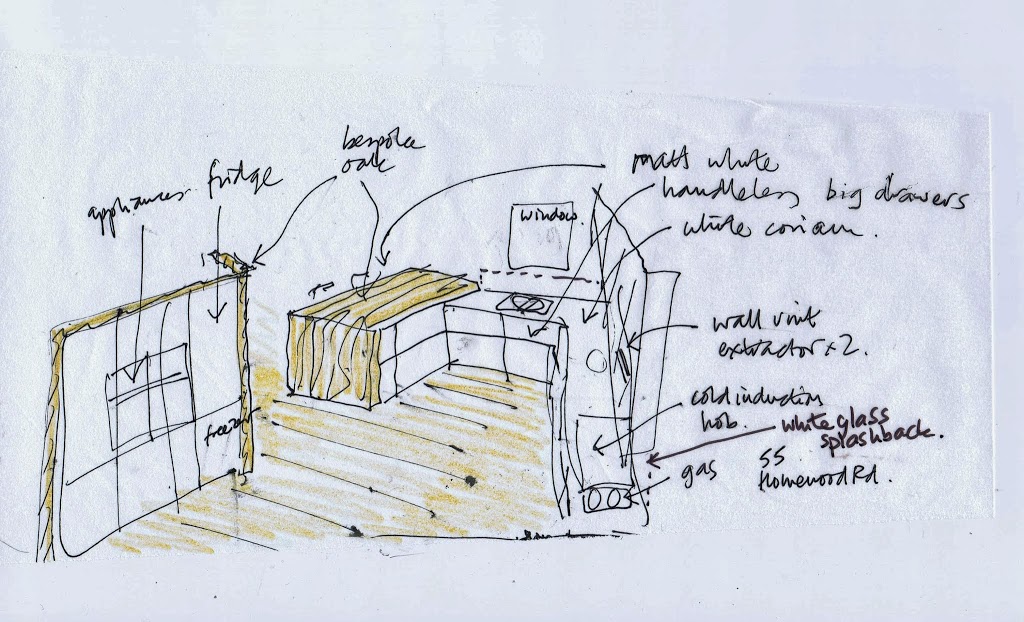 bespoke
oak
fridge
appliances
matt white
handleless big drawers
window
white corian.
wall unit
extractor x 2.
cold induction
hob.
white glass
splashback.
gas
55
Homewood Rd.
freezer